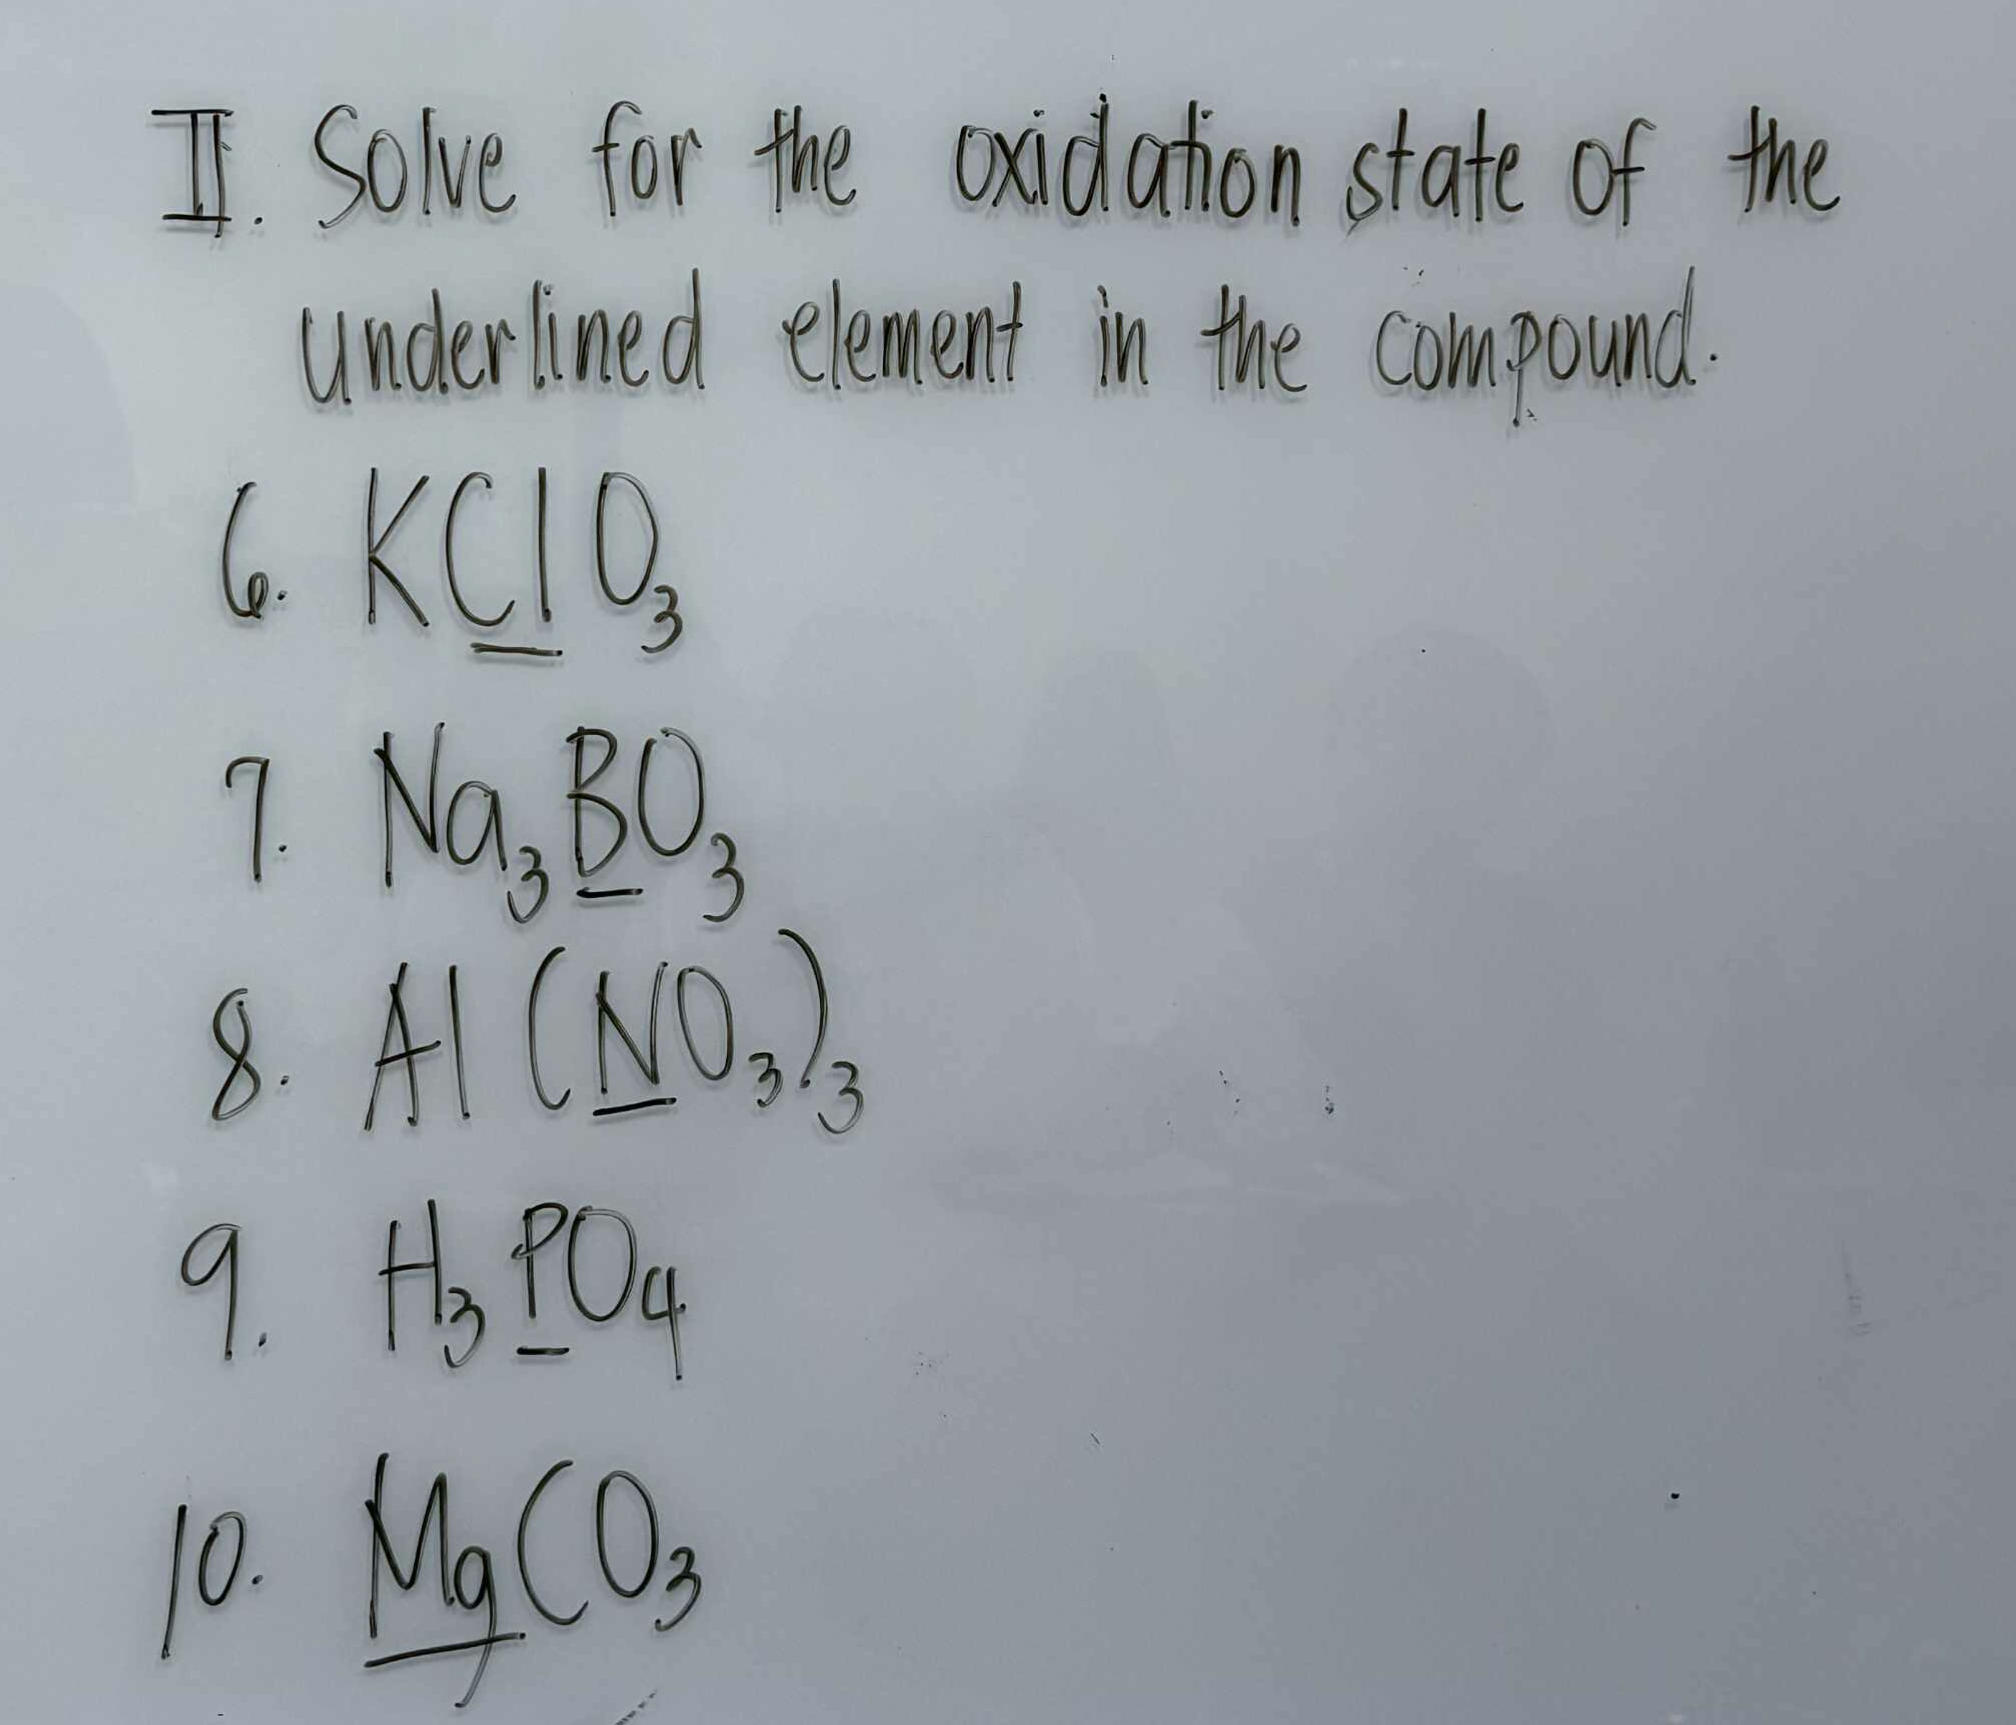 II. Solve for the oxidation state of the
underlined element in the compound.
6. KClO₃
7. Na₃BO₃
8. Al(NO₃)₃
9. H₃PO₄
10. MgCO₃